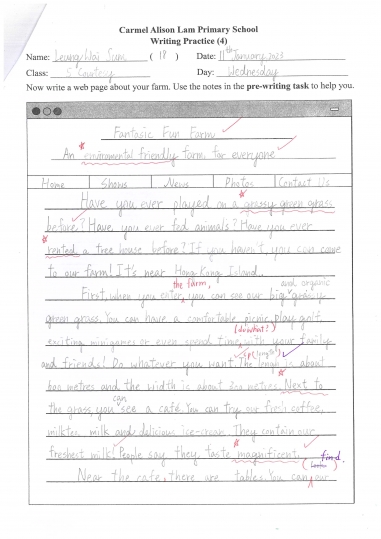 Carmel Alison Lam Primary School
Writing Practice (4)
Name: Leung Wai Sum ( 18 ) Date: 11th January 2023
Class: 5 Courtesy Day: Wednesday
Now write a web page about your farm. Use the notes in the pre-writing task to help you.
Fantasic Fun Farm
An enviromental friendly farm for everyone
Home Shows News Photos Contact Us
Have you ever played on a grassy green grass
before? Have you ever fed animals? Have you ever
rented a tree house before? If you haven't, you can come
to our farm! It's near Hong Kong Island.
the farm, and organic
First, when you enter, you can see our big grassy
green grass. You can have a comfortable picnic, play
exciting minigames or even spend time with your family
and friends! Do whatever you want. The lengh is about
600 metres and the width is about 300 metres. Next to
can
the grass, you see a cafe. You can try our fresh coffee,
milktea, milk and delicious ice-cream. They contain our
freshest milk! People say they taste magnificent.
find
Near the cafe, there are tables. You can our